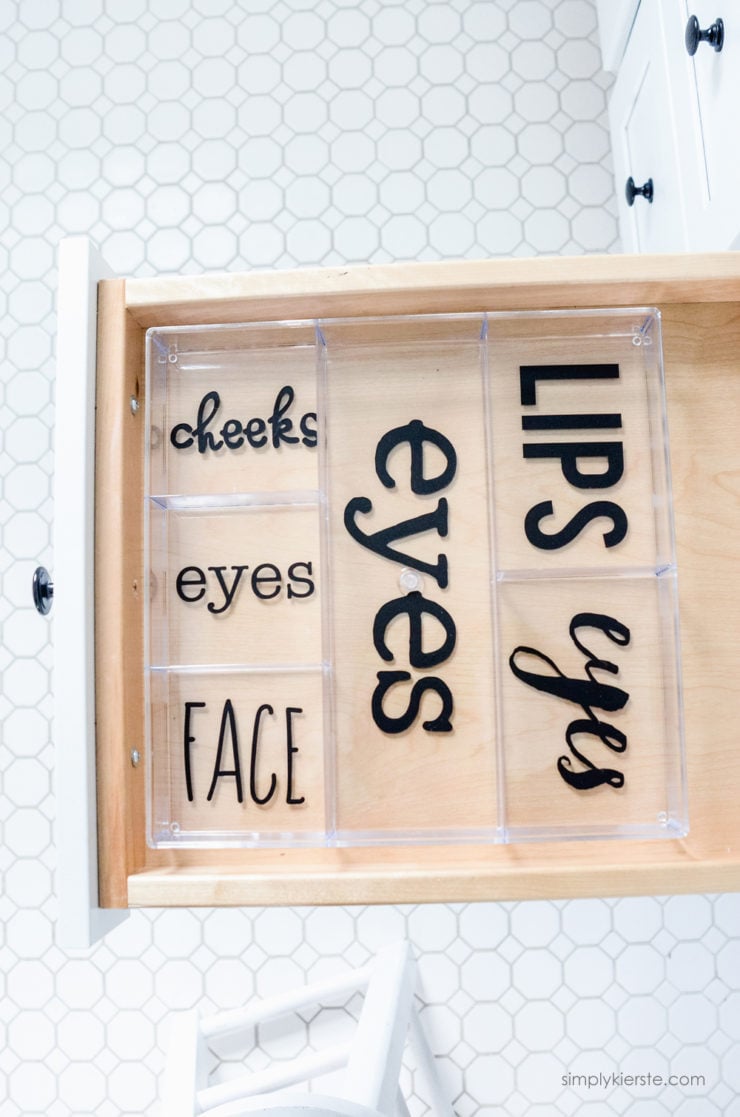 cheeks
eyes
FACE
eyes
LIPS
eyes
simplykierste.com